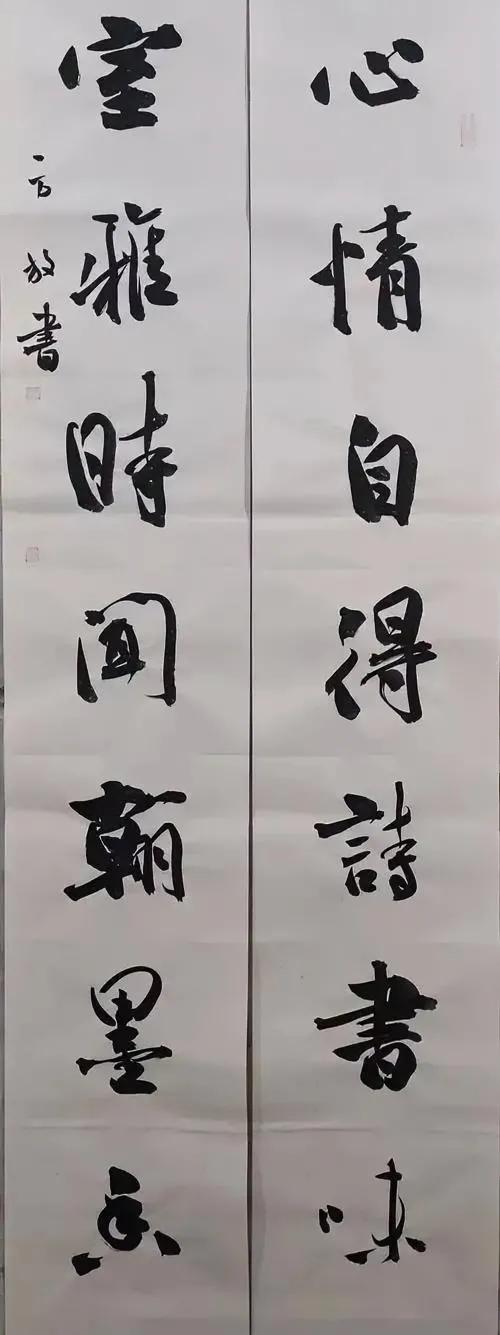 心情自得詩書味
室雅時聞翰墨香
放書